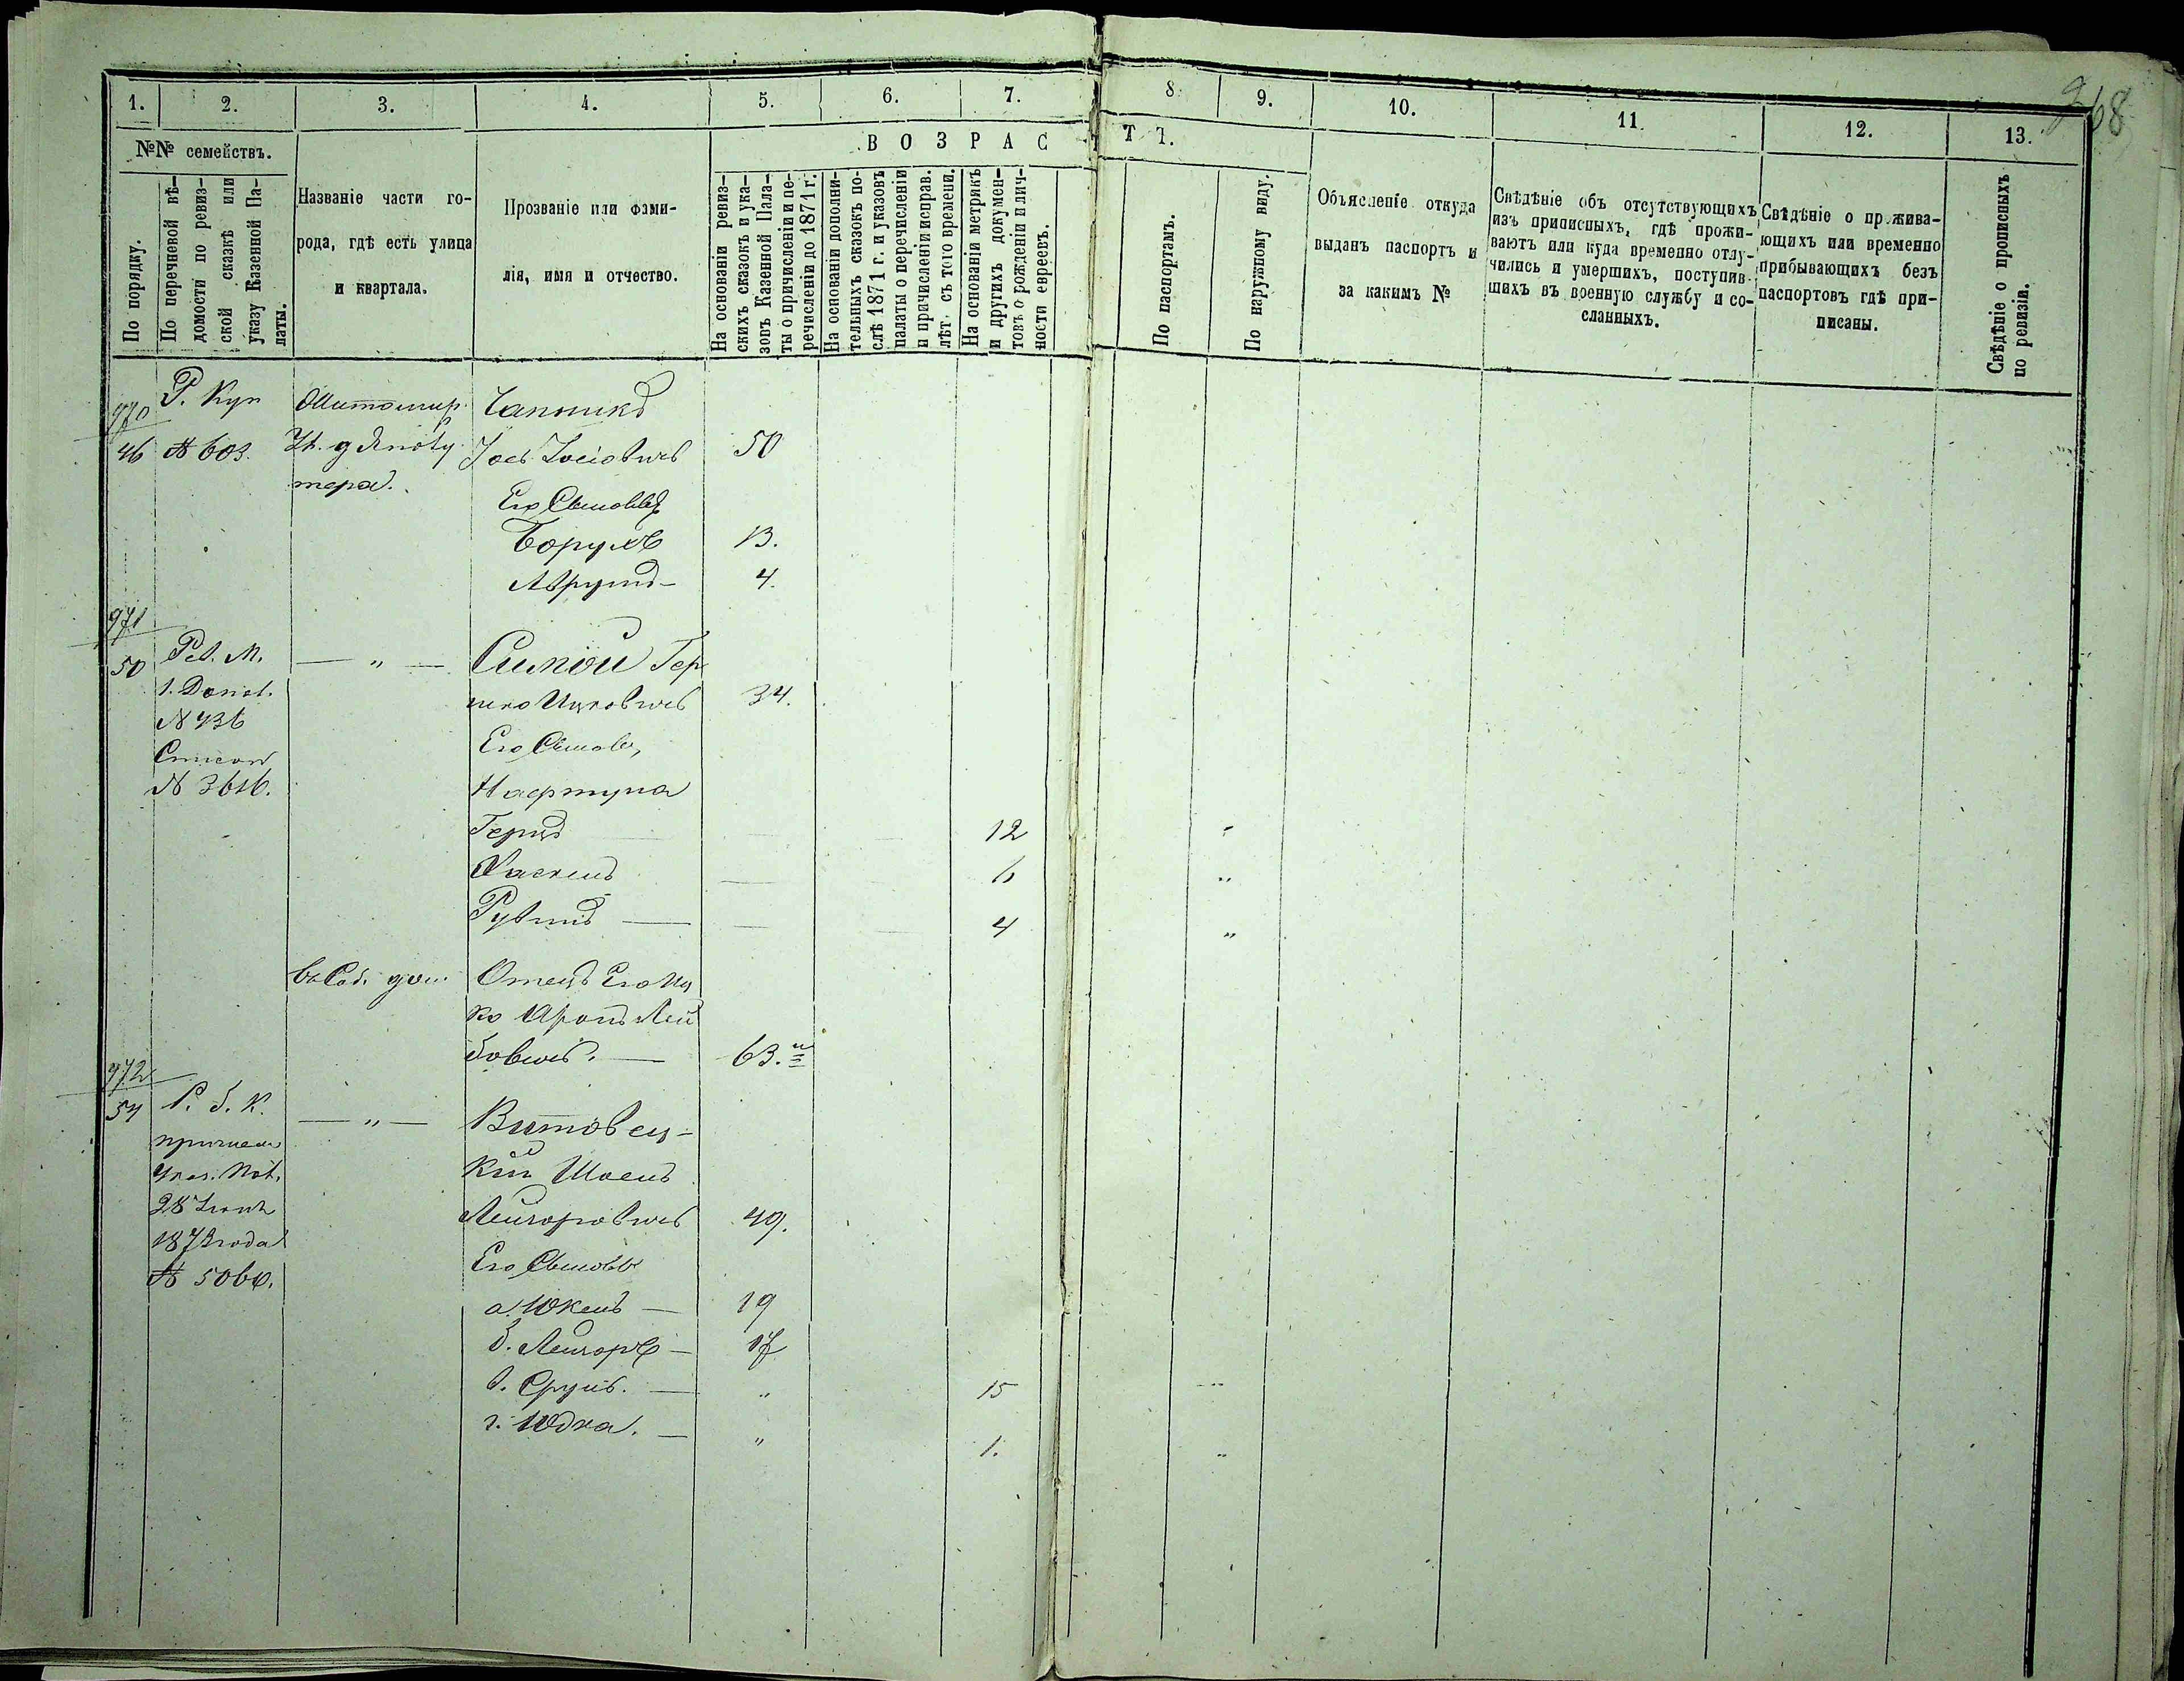 268
1. 2. 3. 4. 5. 6. 7. 8. 9. 10. 11. 12. 13.
№№ семействъ.
По порядку.
По перечневой вѣ-
домости по ревиз-
ской сказкѣ или
указу Казенной Па-
латы.
Названіе части го-
рода, гдѣ есть улица
и квартала.
Прозваніе или фами-
лія, имя и отчество.
ВОЗРАСТЪ.
На основаніи ревиз-
скихъ сказокъ и ука-
зовъ Казенной Пала-
ты о причисленіи и пе-
речисленіи до 1871 г.
На основаніи дополни-
тельныхъ сказокъ по-
слѣ 1871 г. и указовъ
палаты о перечисленіи
и причисленіи исправ.
лѣт. съ того времени.
На основаніи метрикъ
и другихъ докумен-
товъ о рожденіи и лич-
ности евреевъ.
По паспортамъ.
По наружному виду.
Объясненіе откуда
выданъ паспортъ и
за какимъ №
Свѣдѣніе объ отсутствующихъ
изъ приписныхъ, гдѣ прожи-
ваютъ или куда временно отлу-
чились и умершихъ, поступив-
шихъ въ военную службу и со-
сланныхъ.
Свѣдѣніе о прожива-
ющихъ или временно
прибывающихъ безъ
паспортовъ гдѣ при-
писаны.
Свѣдѣніе о прописныхъ
по ревизіи.
970 Р. Куп Житомир.
46 № 603. Іось Іосіовичъ 50
Его Сыновья
Борухъ 13.
Аврумъ 4.
971
50 Рев. М. — „ — Гер
шко Ицковичъ 34.
№ 436
Его Сынов.
Герцъ 12
Хаскель 6
Рувинъ 4
въ Соб. дом. Отецъ Его Иц
ко Аронъ Лей
бовичъ. — 63.
972
54 Р. б. К. — „ — Витовец-
кій
28 Іюня Лейзоровичъ 49.
1873 года Его Сыновья
№ 5060.
а. Юкель — 19
б. Лейзоръ — 17
в. Сруль. — „ 15
г. Юдка. — „ 1.